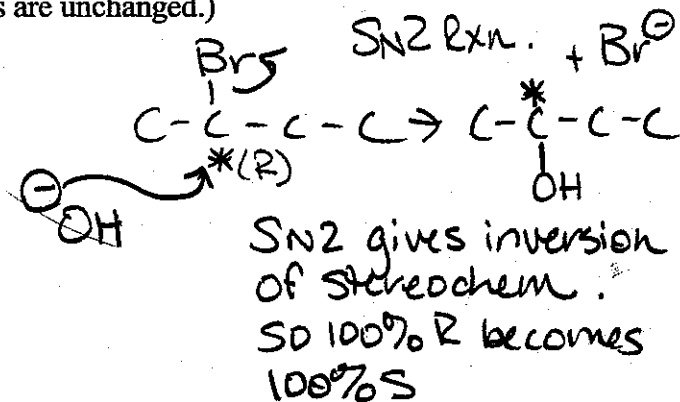 s are unchanged.)
SN2 Rxn.
Br + Br⊖
C-C-C-C → C-C-C-C
*(R) *
⊖OH OH
SN2 gives inversion
of stereochem.
SO 100% R becomes
100% S